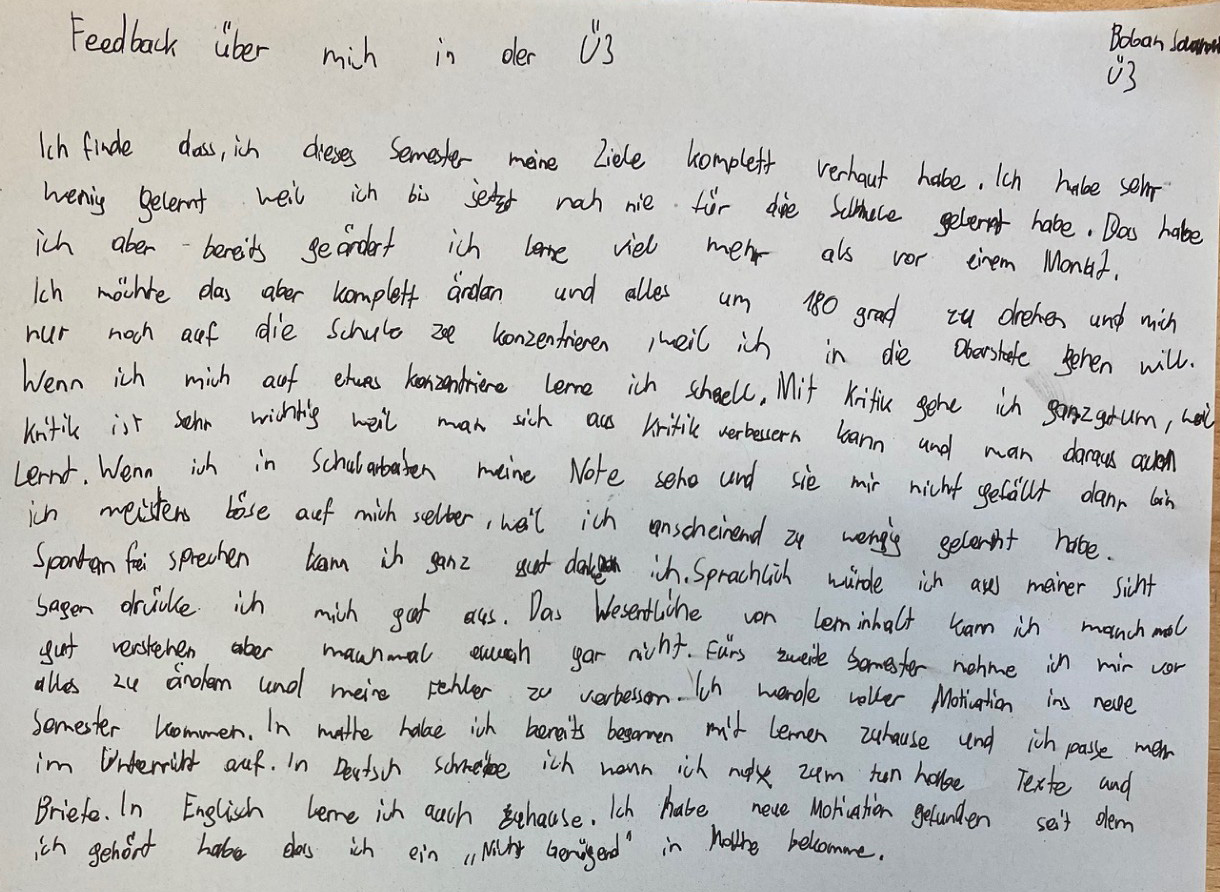 Feedback über mich in der Ü3
Boban
Ü3
Ich finde dass, ich dieses Semester meine Ziele komplett verhaut habe. Ich habe sehr
wenig gelernt weil ich bis jetzt noch nie für die Schule gelernt habe. Das habe
ich aber bereits geändert ich lerne viel mehr als vor einem Monat.
Ich möchte das aber komplett ändan und alles um 180 grad zu drehen und mich
nur noch auf die Schule zu konzentrieren, weil ich in die Oberstufe gehen will.
Wenn ich mich auf etwas konzentriere lerne ich schnell. Mit Kritik gehe ich ganz gut um, weil
Kritik ist sehr wichtig weil man sich aus Kritik verbessern kann und man daraus auch
lernt. Wenn ich in Schularbeiten meine Note sehe und sie mir nicht gefällt dann bin
ich meistens böse auf mich selber, weil ich anscheinend zu wenig gelernt habe.
Spontan frei sprechen kann ich ganz gut ich. Sprachlich würde ich aus meiner Sicht
sagen drücke ich mich gut aus. Das Wesentliche von lerninhalt kann ich manchmal
gut verstehen aber manchmal auch gar nicht. Fürs zweite Semester nehme ich mir vor
alles zu ändern und meine Fehler zu verbessern. Ich werde voller Motivation ins neue
Semester kommen. In mathe habe ich bereits begonnen mit lernen zuhause und ich passe mehr
im Unterricht auf. In Deutsch schreibe ich wenn ich nix zum tun habe Texte und
Briefe. In Englisch lerne ich auch zuhause. Ich habe neue Motivation gefunden seit dem
ich gehört habe das ich ein „Nicht Genügend" in Mathe bekomme.